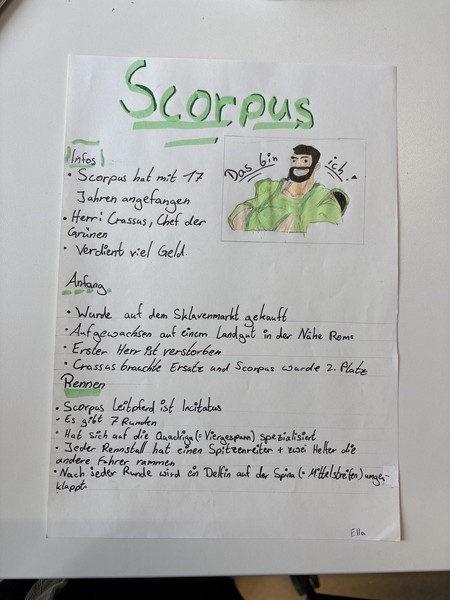 Scorpus
Infos
Das bin ich!
• Scorpus hat mit 17
Jahren angefangen
• Herr: Crassus, Chef der
Grünen
• Verdient viel Geld.
Anfang
• Wurde auf dem Sklavenmarkt gekauft
• Aufgewachsen auf einem Landgut in der Nähe Roms
• Erster Herr ist verstorben
• Crassus brauchte Ersatz und Scorpus wurde 2. Platz
Rennen
• Scorpus Leitpferd ist Incitatus
• Es gibt 7 Runden
• Hat sich auf die Quadriga (= Viergespann) spezialisiert
• Jeder Rennstall hat einen Spitzenreiter + zwei Helfer die
andere Fahrer rammen
• Nach jeder Runde wird ein Delfin auf der Spina (= Mittelstreifen) umge-
klappt.
Ella